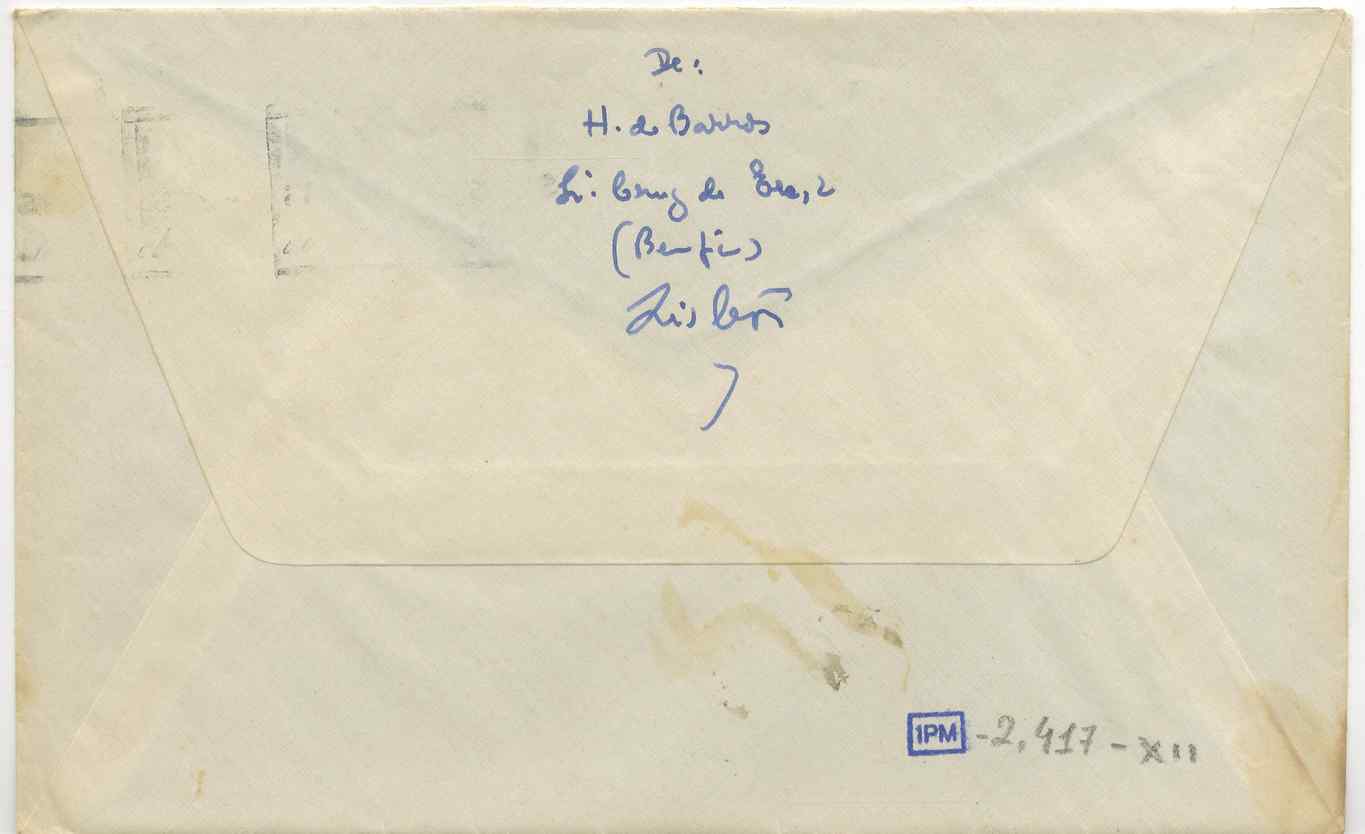 De:
H. de Barros
Cruz da Era, 2
(Benfica)
Lisboa
1PM -2.417 - XII